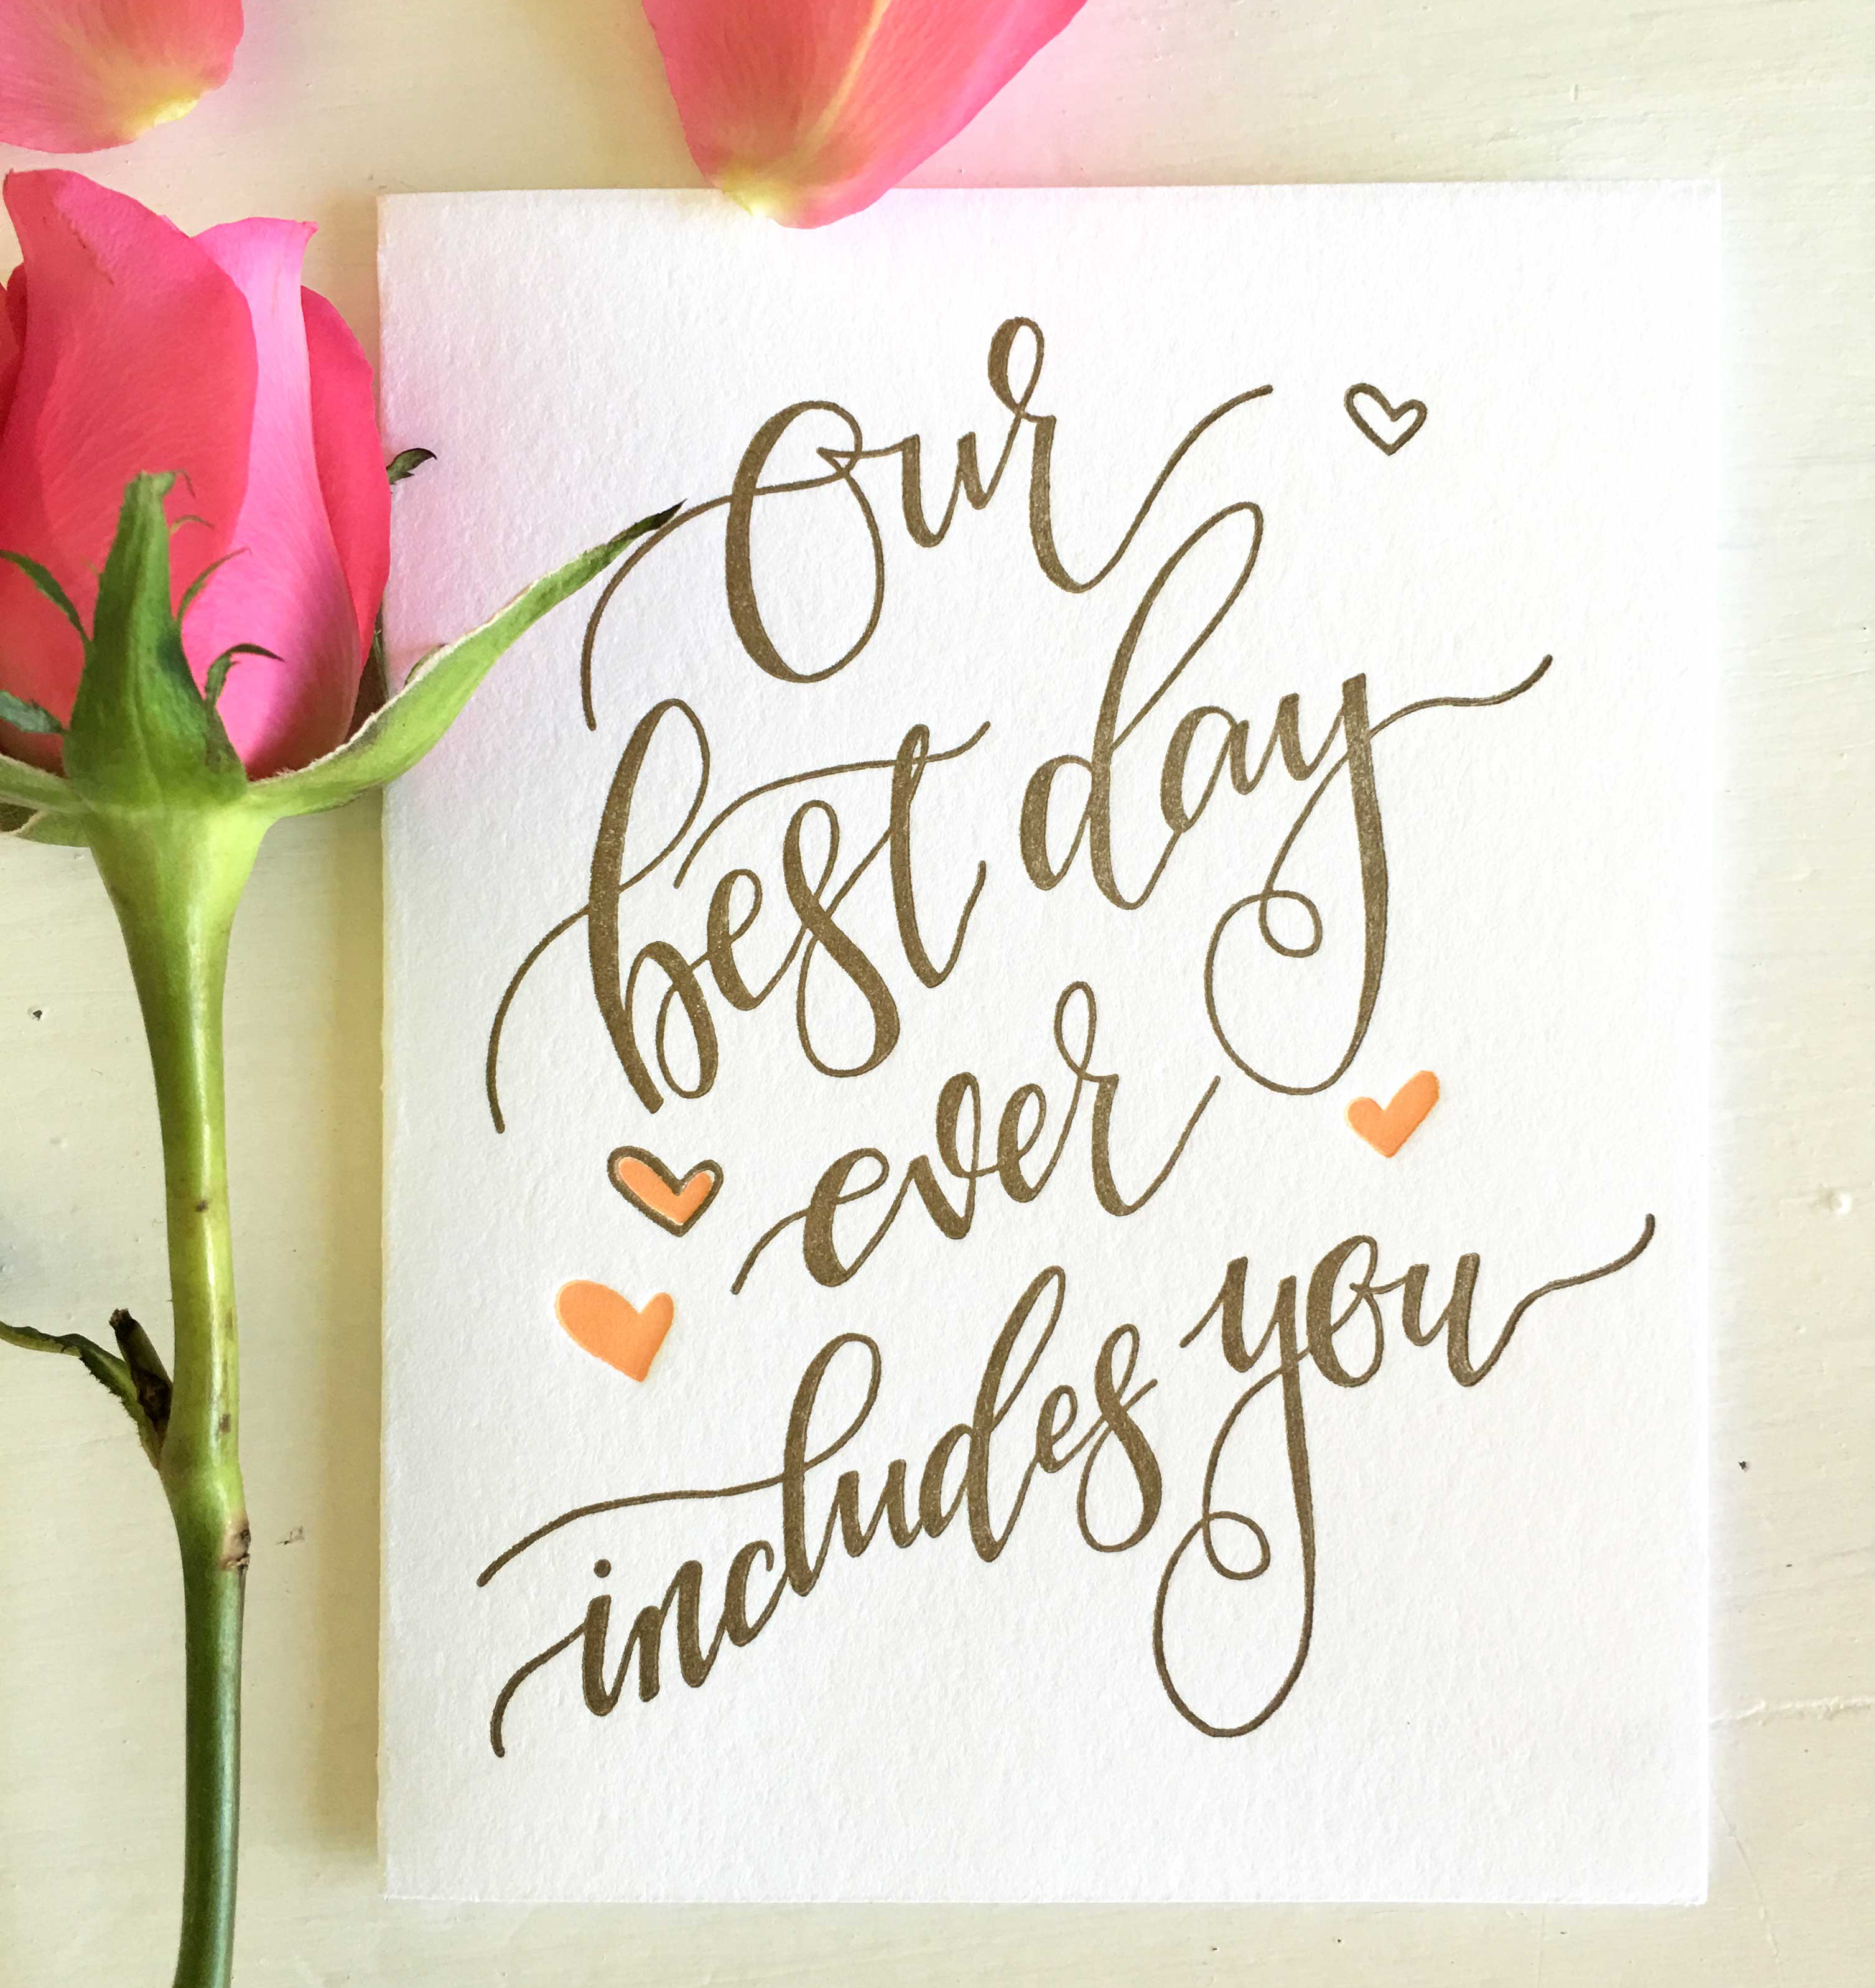 Our
best day
ever
includes you